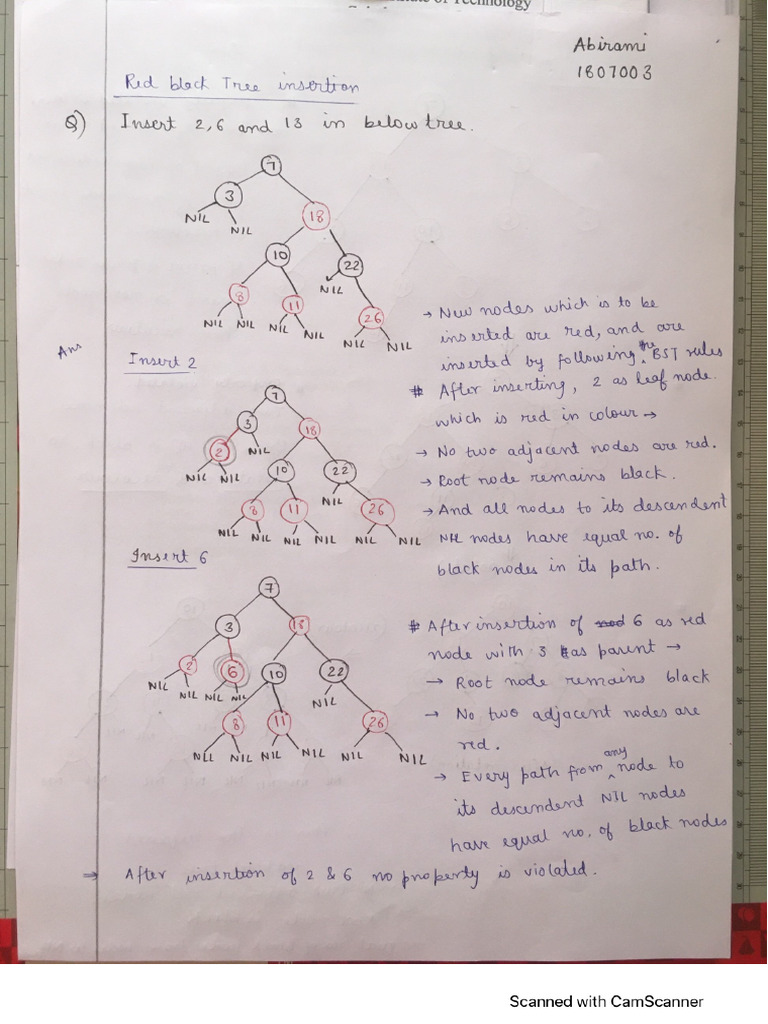 of Technology
Abirami
1807003
Red black Tree insertion
Q) Insert 2, 6 and 13 in below tree.
7
3
18
NIL NIL
10
22
NIL
8 11 26
NIL NIL NIL NIL NIL NIL
→ New nodes which is to be
inserted are red, and are
inserted by following the BST rules
Ans
Insert 2
# After inserting, 2 as leaf node.
which is red in colour →
→ No two adjacent nodes are red.
→ Root node remains black.
→ And all nodes to its descendent
NIL nodes have equal no. of
black nodes in its path.
7
3 18
2 NIL
NIL NIL
10 22
NIL
8 11 26
NIL NIL NIL NIL NIL NIL
Insert 6
7
3 18
2 6 10 22
NIL NIL NIL NIL
NIL
8 11 26
NIL NIL NIL NIL NIL NIL
# After insertion of 6 as red
node with 3 as parent →
→ Root node remains black
→ No two adjacent nodes are
red.
→ Every path from any node to
its descendent NIL nodes
have equal no. of black nodes
⇒ After insertion of 2 & 6 no property is violated.
Scanned with CamScanner